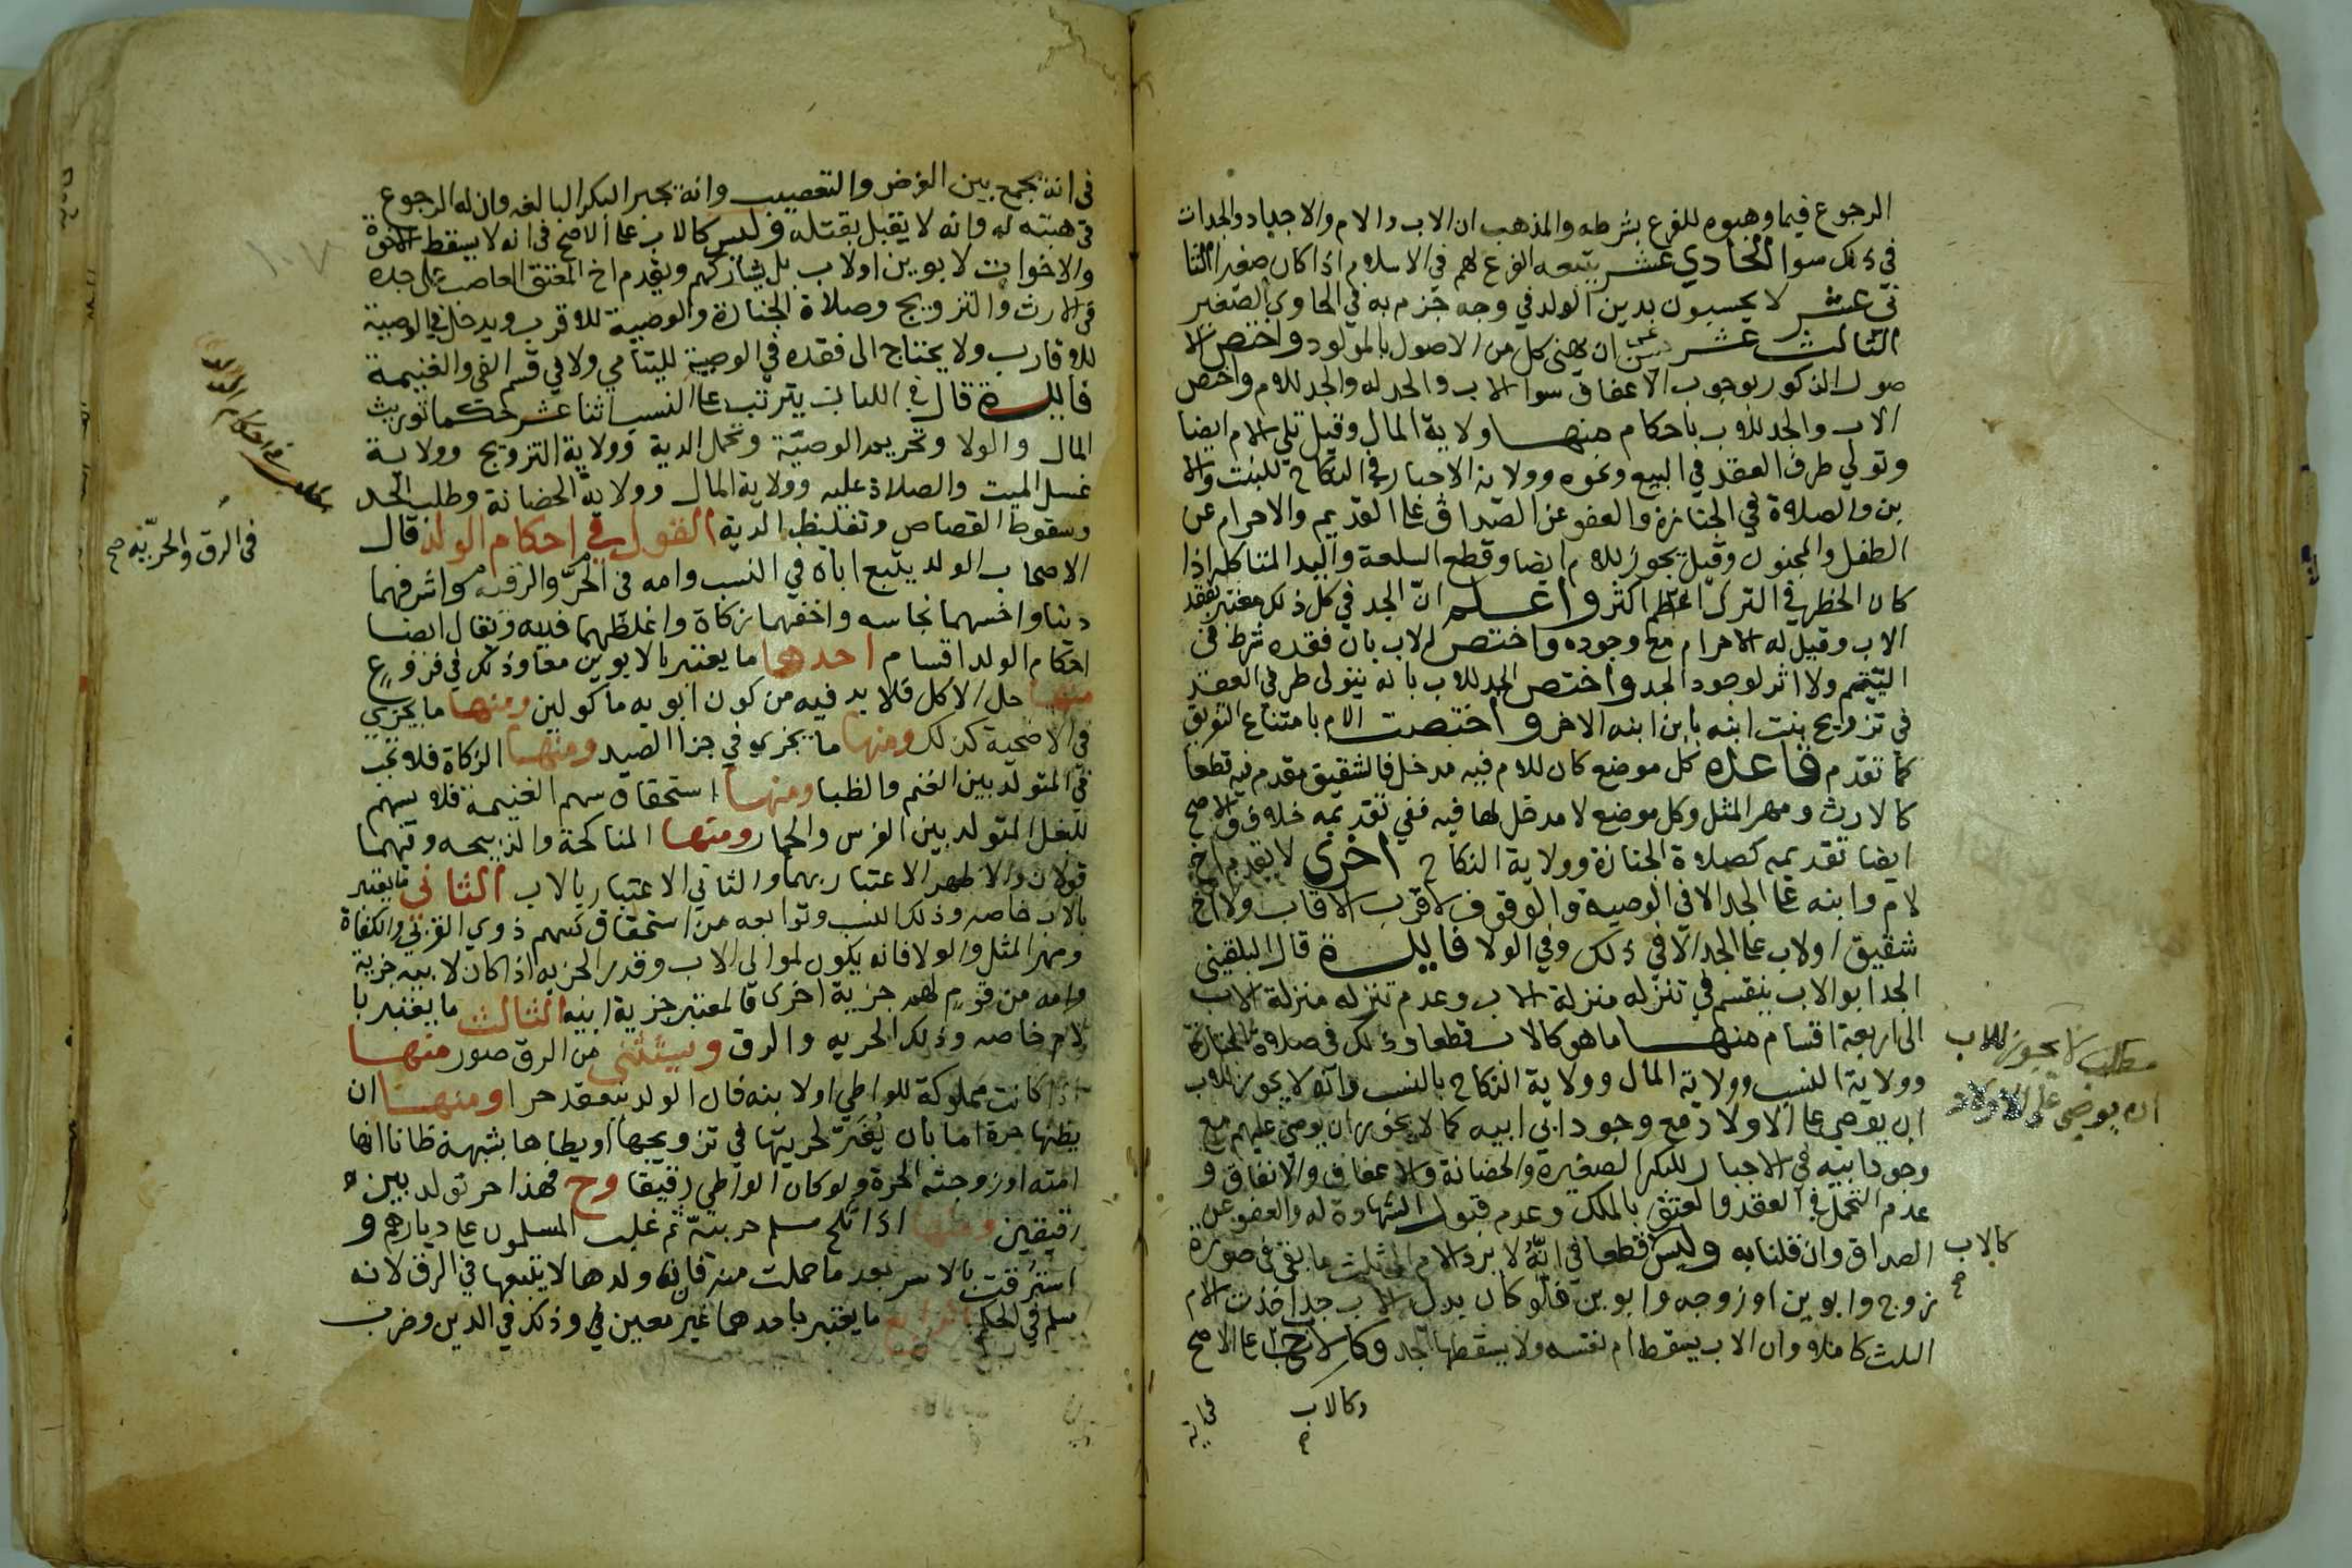 الرجوع فيما وهبوه للفرع بشرطه والمذهب ان الاب والام والاجداد والجدات
في ذلك سوا الحادي عشر يتبعه الفرع لهم في الاسلام اذا كان صغيرا الثا
ني عشر لا يحبسون بدين الولد في وجه جزم به في الحاوي الصغير
الثالث عشر يسن ان يهنى كل من الاصول بالمولود واختص الا
صول الذكور بوجوب الاعفاف سوا الاب والجد له والجد للام واختص
الاب والجد للاب باحكام منها ولاية المال وقيل تلي الام ايضا
وتولي طرفي العقد في البيع ونحوه وولاية الاجبار في النكاح للبنت والا
بن والصلاة في الجنازة والعفو عن الصداق على القديم والاحرام عن
الطفل والمجنون وقيل يجوز للام ايضا وقطع السلعة واليد المتاكله اذا
كان الخطر في الترك اعظم اكثر واعلم ان الجد في كل ذلك معتبر بفقد
الاب وقيل له الاحرام مع وجوده واختص الاب بان فقده شرط في
اليتيم ولا اثر لوجود الجد واختص الجد للاب بانه يتولى طرفي العقد
في تزويج بنت ابنه بابن ابنه الاخر واختصت الام بامتناع التفريق
كما تقدم قاعدة كل موضع كان للام فيه مدخل فالشقيق مقدم فيه قطعا
كالارث ومهر المثل وكل موضع لا مدخل لها فيه ففي تقديمه خلاف والاصح
ايضا تقديمه كصلاة الجنازة وولاية النكاح اخرى لا يقدم اخ
لام وابنه على الجد الا في الوصية والوقوف لاقرب الاقارب ولا اخ
شقيق او لاب على الجد الا في ذلك وفي الولا فايدة قال البلقيني
الجد ابو الاب ينقسم في تنزله منزلة الاب وعدم تنزله منزلة الاب
الى اربعة اقسام منها ما هو كالاب قطعا وذلك في صلاة الجنازة
وولاية النسب وولاية المال وولاية النكاح بالنسب وانه لا يجوز للاب
ان يوصي على الاولاد مع وجود ابي ابيه كما لا يجوز ان يوصي عليهم مع
وجود ابيه في الاجبار للبكر الصغيرة والحضانة والاعفاف والانفاق و
عدم التحمل في العقد والعتق بالملك وعدم قبول الشهادة له والعفو عن
الصداق وان قلنا به وليس كالاب قطعا في انه لا يرد الام الى ثلث ما يبقى في صورة
زوج وابوين او زوجه وابوين فلو كان بدل الاب جد اخذت الام
الثلث كاملا وان الاب يسقط ام نفسه ولا يسقطها الجد وكالاب على الاصح
مطلب لا يجوز للاب
ان يوصي على الاولاد
كالاب
صح
وكالاب
في انه
في انه يجمع بين الفرض والتعصيب وانه يجبر البكر البالغه وان له الرجوع
في هبته له وانه لا يقتل بقتله وليس كالاب على الاصح في انه لا يسقط الاخوة
والاخوات لابوين او لاب بل يشاركهم ويقدم اخ المعتق العاصب على جده
في الارث والتزويج وصلاة الجنازة والوصية للاقرب ويدخل في الوصية
للاقارب ولا يحتاج الى فقده في الوصية لليتامي ولا في قسم الفي والغنيمة
فايدة قال في اللباب يترتب على النسب اثنا عشر حكما توريث
المال والولا وتحريم الوصية وتحمل الدية وولاية التزويج وولاية
غسل الميت والصلاة عليه وولاية المال وولاية الحضانة وطلب الحد
وسقوط القصاص وتغليظ الدية القول في احكام الولد قال
الاصحاب الولد يتبع اباه في النسب وامه في الحر والرقيه واشرفهما
دينا واخسهما نجاسه واخفهما زكاة واغلظهما فديه ويقال ايضا
احكام الولد اقسام احدها ما يعتبر بالابوين معا وذلك في فروع
منها حل الاكل فلا بد فيه من كون ابويه ماكولين ومنها ما يجزي
في الاضحية كذلك ومنها ما يجزي في جزا الصيد ومنها الزكاة فلا تجب
في المتولد بين الغنم والظبا ومنها استحقاق سهم الغنيمة فلا يسهم
للبغل المتولد بين الفرس والحمار ومنها المناكحة والذبيحه وفيهما
قولان والاظهر الاعتبار بهما والثاني الاعتبار بالاب الثاني ما يعتبر
بالاب خاصه وذلك النسب وتوابعه من استحقاق سهم ذوي القربي والكفاة
ومهر المثل والولا فانه يكون لموالي الاب وقدر الجزيه اذا كان لابيه جزية
وامه من قوم لهم جزية اخرى فالمعتبر جزية ابيه الثالث ما يعتبر با
لام خاصه وذلك الحريه والرق ويستثنى من الرق صور منها
اذا كانت مملوكة للواطي او لابنه فان الولد ينعقد حرا ومنها ان
يظنها حرة اما بان يغتر لحريتها في تزويجها او يطاها بشبهة ظانا انها
امته او زوجته الحرة ولو كان الواطي رقيقا وح فهذا حر تولد بين
رقيقين ومنها اذا نكح مسلم حربية ثم غلب المسلمون على ديارهم و
استرقت بالاسر بعد ما حملت منه فانه ولدها لا يتبعها في الرق لانه
مسلم في الحكم الرابع ما يعتبر باحدهما غير معين في وذلك في الدين وضرب
في الرق والحريه صح